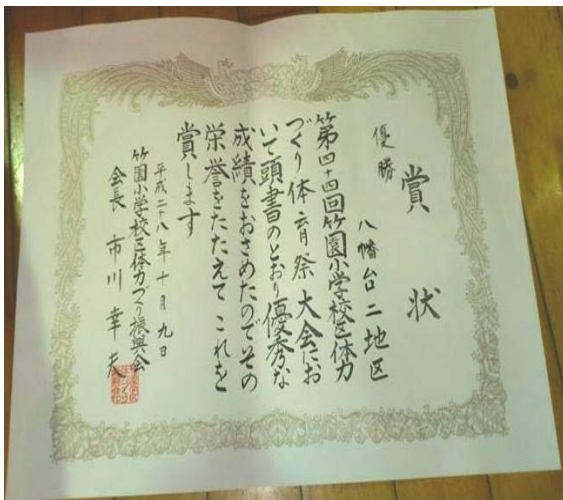 賞状
優勝
八幡台二地区
第四十四回竹園小学校区体力
づくり体育祭大会にお
いて頭書のとおり優秀な
成績をおさめたのでその
栄誉をたたえてこれを
賞します
平成二十八年十月九日
竹園小学校区体力づくり振興会
会長 市川幸夫